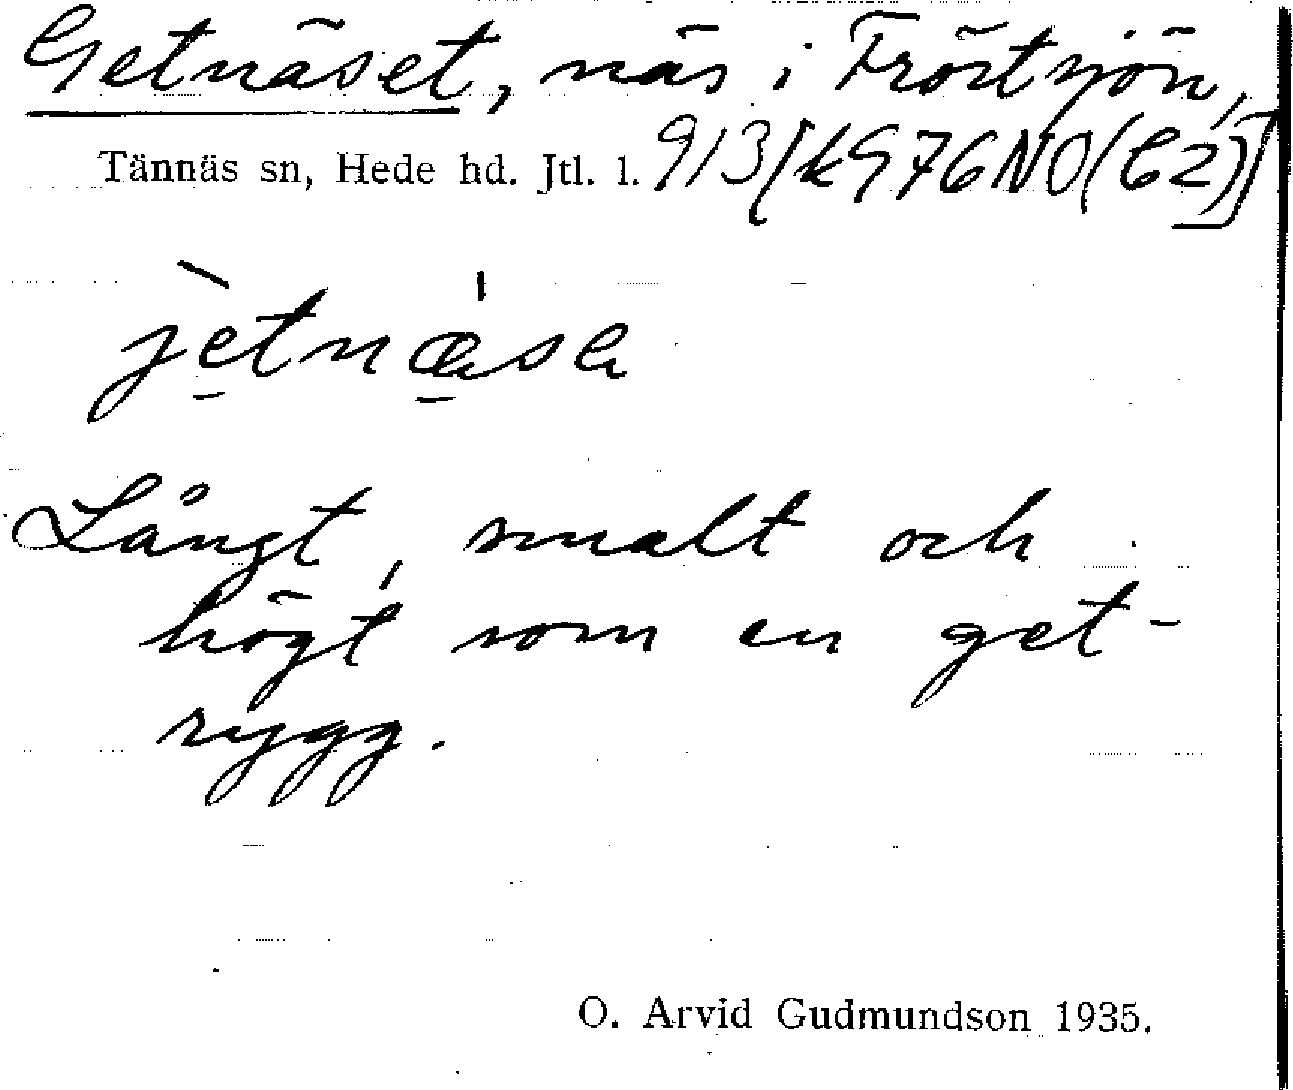 Getnäset, näs i Frötsjön,
Tännäs sn, Hede hd. Jtl. l. 913[kS76NO(C2)]
jètnæ̀sa
Långt, smalt och
högt som en get-
rygg.
O. Arvid Gudmundson 1935.